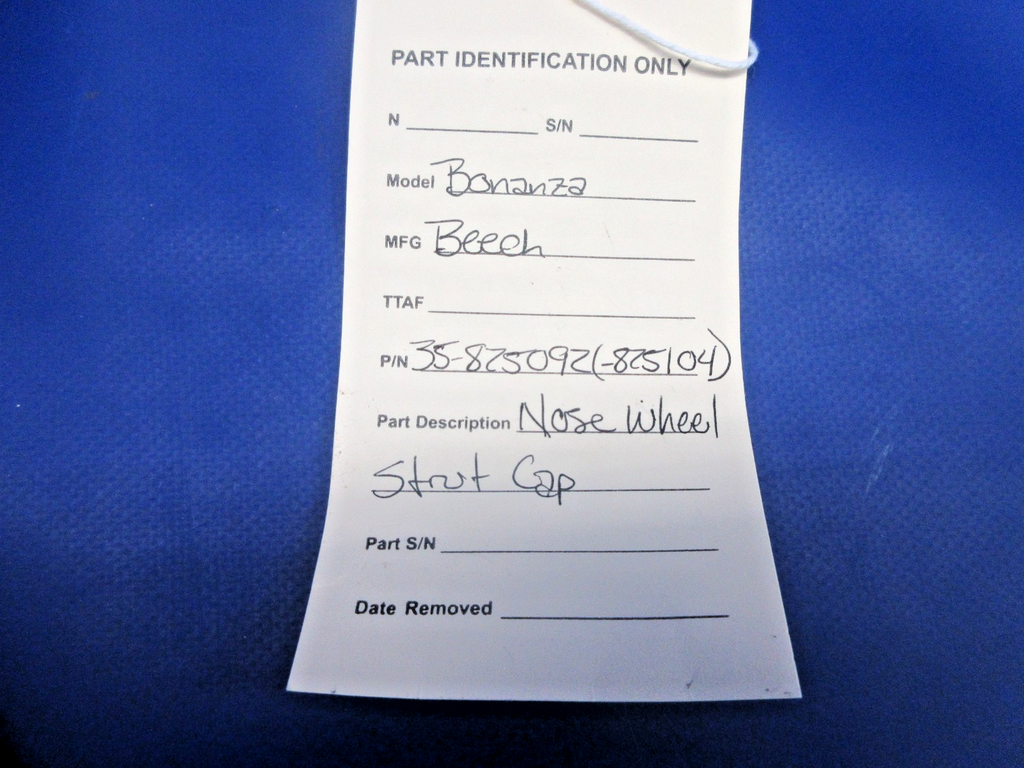 PART IDENTIFICATION ONLY
N S/N
Model Bonanza
MFG Beech
TTAF
P/N 35-825092(-825104)
Part Description Nose Wheel
Strut Cap
Part S/N
Date Removed